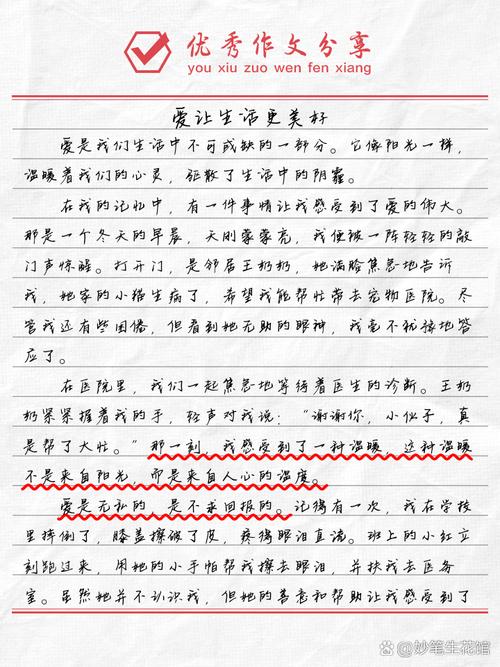 优秀作文分享
you xiu zuo wen fen xiang
爱让生活更美好
爱是我们生活中不可或缺的一部分。它像阳光一样，
温暖着我们的心灵，驱散了生活中的阴霾。
在我的记忆中，有一件事情让我感受到了爱的伟大。
那是一个冬天的早晨，天刚蒙蒙亮，我便被一阵轻轻的敲
门声惊醒。打开门，是邻居王奶奶，她满脸焦急地告诉
我，她家的小猫生病了，希望我能帮忙带去宠物医院。尽
管我还有些困倦，但看到她无助的眼神，我毫不犹豫地答
应了。
在医院里，我们一起焦急地等待着医生的诊断。王奶
奶紧紧握着我的手，轻声对我说：“谢谢你，小伙子，真
是帮了大忙。”那一刻，我感受到了一种温暖，这种温暖
不是来自阳光，而是来自人心的温度。
爱是无私的，是不求回报的。记得有一次，我在学校
里摔倒了，膝盖擦破了皮，疼得眼泪直流。班上的小红立
刻跑过来，用她的小手帕帮我擦去眼泪，并扶我去医务
室。虽然她并不认识我，但她的善意和帮助让我感受到了
妙笔生花馆